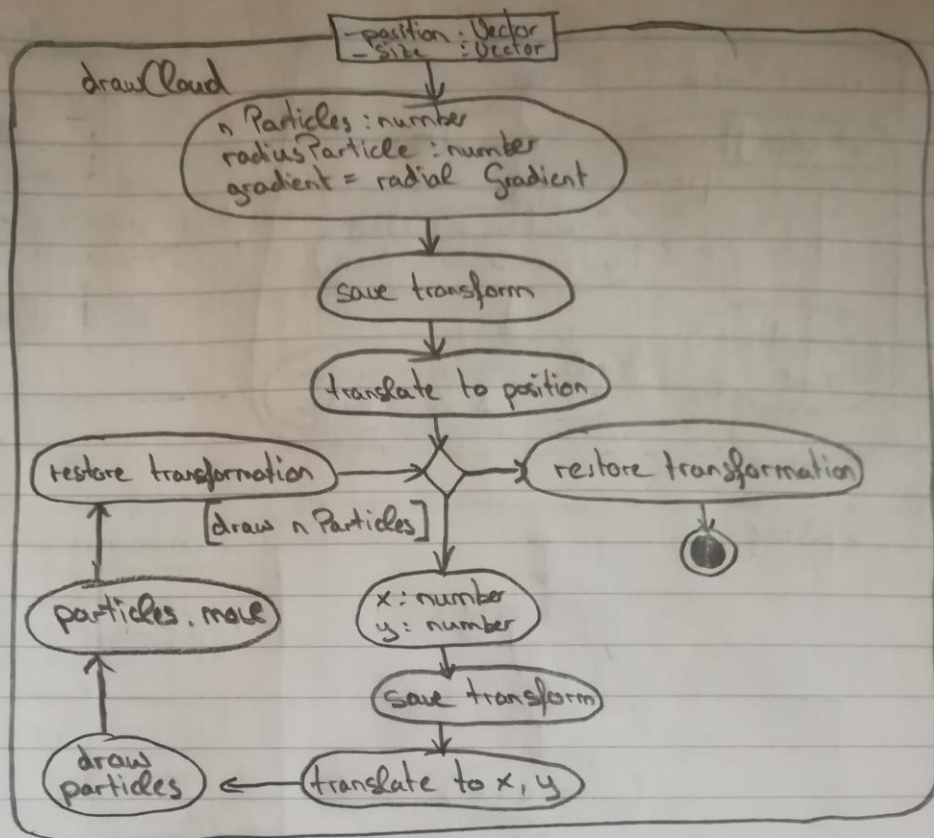 - position : Vector
- Size : Vector
drawCloud
n Particles : number
radiusParticle : number
gradient = radial Gradient
save transform
translate to position
restore transformation
restore transformation
[draw n Particles]
x : number
y : number
particles. move
save transform
draw
particles
translate to x, y